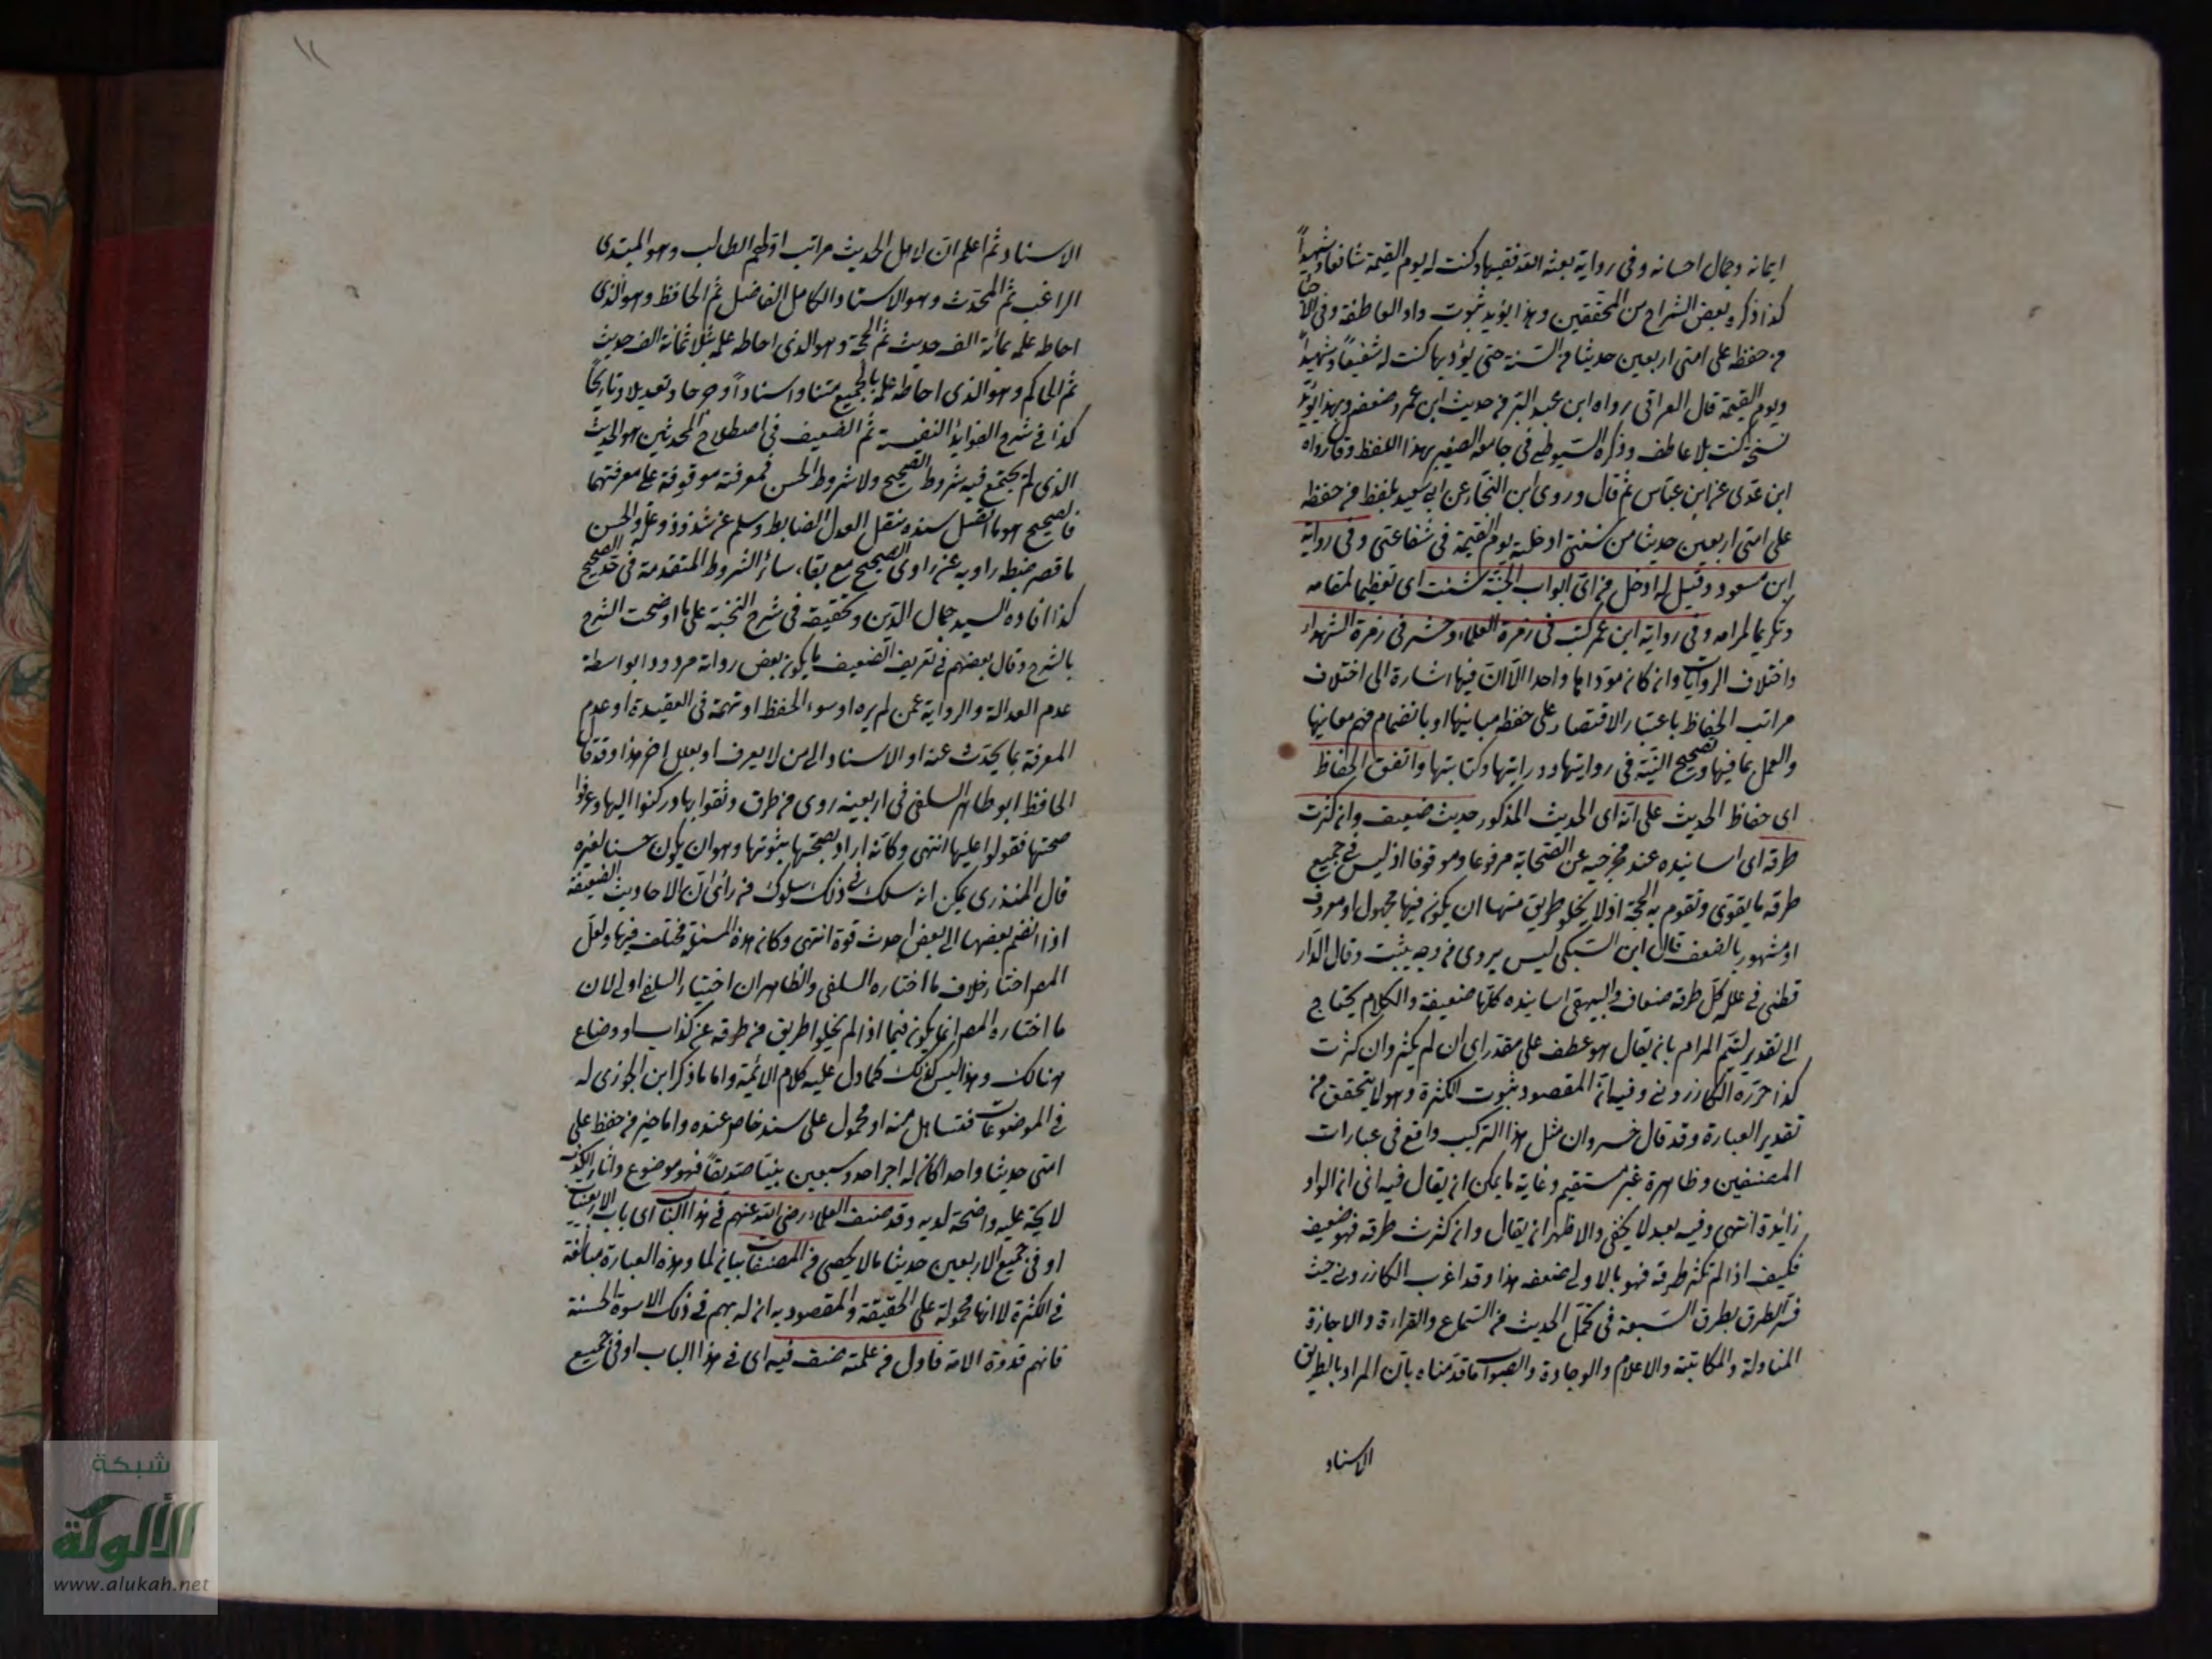 ايمانه وجمال احسانه وفي رواية بعثه الله فقيها وكنت له يوم القيمة شافعا وشهيداً
كذا ذكره بعض الشراح من المحققين وهذا يؤيد ثبوت واو العاطفة وفي
من حفظ على امتي اربعين حديثا من السنة حتى يؤديها كنت له شفيعاً وشهيداً
ويوم القيمة قال العراقي رواه ابن عبد البر من حديث ابن عمر وضعفه وبهذا يؤيد
نسخة كنت بلا عاطف وذكره السيوطي في جامعه الصغير بهذا اللفظ وقال رواه
ابن عدى عن ابن عباس ثم قال وروى ابن النجار عن ابى سعيد بلفظ من حفظ
على امتى اربعين حديثا من سنتى ادخلته يوم القيمة فى شفاعتى وفى رواية
ابن مسعود وقيل له ادخل من اى ابواب الجنة شئت اى تعظيما لمقامه
وتكريما لمرامه وفى رواية ابن عمر كتب فى زمرة العلماء وحشر فى زمرة الشهداء
واختلاف الروايات وان كان مؤداها واحدا الا ان فيها اشارة الى اختلاف
مراتب الحفاظ باعتبار الاقتصار على حفظ مبانيها او بانضمام فهم معانيها
والعمل بما فيها وتصحيح النية فى روايتها ودرايتها وكتابتها واتفق الحفاظ
اى حفاظ الحديث على انه اى الحديث المذكور حديث ضعيف وان كثرت
طرقه اى اسانيده عند مخرجيه عن الصحابة مرفوعا وموقوفا اذ ليس فى جميع
طرقه ما يقوى وتقوم به الحجة اذ لا يخلو طريق منها ان يكون فيها مجهول او معروف
او مشهور بالضعف قال ابن السبكى ليس يروى من وجه يثبت وقال الدار
قطنى فى علله كل طرقه ضعاف والبيهقى اسانيده كلها ضعيفة والكلام يحتاج
الى تقدير لتتيم المرام بان يقال هو عطف على مقدر اى ان لم يكثر وان كثرت
كذا حرره الكازرونى وفيه ان المقصود ثبوت الكثرة وهو لا يتحقق من
تقدير العبارة وقد قال خسرو ان مثل هذا التركيب واقع فى عبارات
المصنفين وظاهره غير مستقيم وغاية ما يمكن ان يقال فيه اى ان الواو
زائدة انتهى وفيه بعد لا يخفى والاظهر ان يقال وان كثرت طرقه فهو ضعيف
فكيف اذا لم تكثر طرقه فهو بالاولى ضعفه هذا وقد اغرب الكازرونى حيث
فسر الطرق بطرق السبعة فى تحمل الحديث من السماع والقراءة والاجازة
المناولة والمكاتبة والاعلام والوجادة والصواب ما قدمناه بان المراد بالطريق
الاسناد
١١
الاسناد ثم اعلم ان لاهل الحديث مراتب اولهم الطالب وهو المبتدى
الراغب ثم المحدث وهو الاستاد الكامل الفاضل ثم الحافظ وهو الذى
احاط علمه بمائة الف حديث ثم الحجة وهو الذى احاط علمه بثلاثمائة الف حديث
ثم الحاكم وهو الذى احاط علمه بالجميع متنا واسناداً وجرحا وتعديلا وتاريخاً
كذا فى شرح الفوايد النفيسة ثم الضعيف فى اصطلاح المحدثين هو الحديث
الذى لم يجتمع فيه شروط الصحيح ولا شروط الحسن فمعرفته موقوفة على معرفتهما
فالصحيح هو ما اتصل سنده بنقل العدل الضابط وسلم عن شذوذ وعلة والحسن
ما قصر ضبط راويه عن راوى الصحيح مع بقاء سائر الشروط المتقدمة فى حد الصحيح
كذا افاده السيد جمال الدين وتحقيقه فى شرح النخبة على ما اوضحت الشرح
بالشرح وقال بعضهم فى تعريف الضعيف ما يكون بعض رواته مردودا بواسطة
عدم العدالة والرواية عمن لم يره او سوء الحفظ او تهمة فى العقيدة او عدم
المعرفة بما يحدث عنه او الاسناد الى من لا يعرف او بعلل اخر هذا وقد قال
الحافظ ابو طاهر السلفى فى اربعينه روى من طرق وثقوا بها وركنوا اليها وعرفوا
صحتها فقولوا عليها انتهى وكانه اراد بصحتها بثبوتها وهو ان يكون حسنا لغيره
قال المنذرى يمكن انه سلك فى ذلك سلوك من رأى ان الاحاديث الضعيفة
اذا انضم بعضها الى بعض احدث قوة انتهى وكان هذه المسئلة مختلف فيها ولعل
المص اختار خلاف ما اختاره السلفى والظاهر ان اختيار السلفى اولى لان
ما اختاره المص انما يكون فيما اذا لم يخلوا طريق من طرقه عن كذاب او وضاع
هنالك وهذا ليس كذلك كما دل عليه كلام الائمة واما ما ذكر ابن الجوزى له
فى الموضوعات فتساهل منه او محمول على سند خاص عنده واما خبر من حفظ على
امتى حديثا واحدا كان له اجر احد وسبعين نبيّا صديقاً فهو موضوع واثار الكذب
لايحة عليه واضحة لديه وقد صنف العلماء رضى الله عنهم فى هذا الباب اى باب الاربعينات
او فى جميع الاربعين حديثا ما لا يحصى من المصنفات بيان لما وهذه العبارة مبالغة
فى الكثرة لا انها محمولة على الحقيقة والمقصود به ان له بهم فى ذلك الاسوة الحسنة
فانهم قدوة الامة فاول من علمته صنف فيه اى فى هذا الباب او فى جميع
شبكة
الألوكة
www.alukah.net